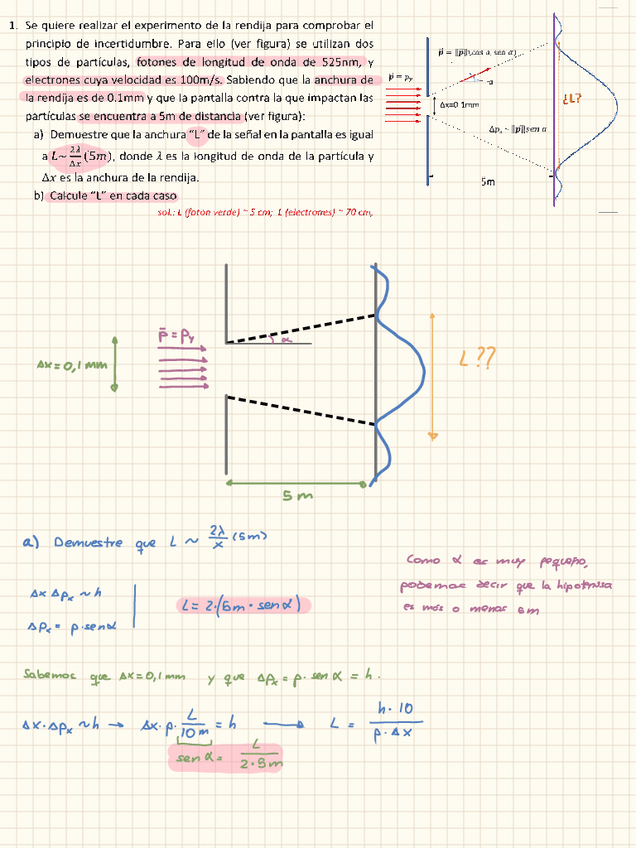 1. Se quiere realizar el experimento de la rendija para comprobar el
principio de incertidumbre. Para ello (ver figura) se utilizan dos
tipos de partículas, fotones de longitud de onda de 525nm, y
electrones cuya velocidad es 100m/s. Sabiendo que la anchura de
la rendija es de 0.1mm y que la pantalla contra la que impactan las
partículas se encuentra a 5m de distancia (ver figura):
a) Demuestre que la anchura "L" de la señal en la pantalla es igual
a L~ 2λ/Δx (5m), donde λ es la longitud de onda de la partícula y
Δx es la anchura de la rendija.
b) Calcule "L" en cada caso
sol.: L (foton verde) ~ 5 cm; L (electrones) ~ 70 cm,
p⃗ = ||p⃗||(cos α, sen α)
p⃗ = pᵧ
α
Δx=0.1mm
¿L?
Δpₓ ~ ||p⃗||sen α
5m
p̄ = pᵧ
α
Δx = 0,1 mm
L ??
5 m
a) Demuestre que L ~ 2λ/x (5m)
Como α es muy pequeño,
podemos decir que la hipotenusa
es más o menos 5m
Δx Δpₓ ~ h
L = 2·(5m · senα)
Δpₓ = p·senα
Sabemos que Δx = 0,1 mm y que Δpₓ = p· sen α = h.
Δx·Δpₓ ~ h → Δx·p· L/10m = h → L = h·10/p·Δx
sen α = L/2·5m